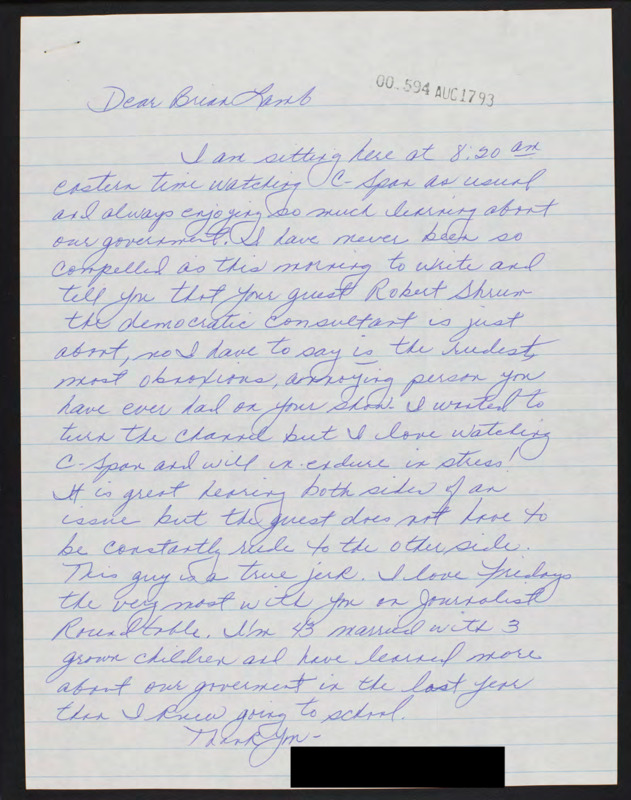 00.594 AUG1793
Dear Brian Lamb
I am sitting here at 8:20 am
eastern time watching C-Span as usual
and always enjoying so much learning about
our government. I have never been so
compelled as this morning to write and
tell you that your guest Robert Shrum
the democratic consultant is just
about, no I have to say is the rudest,
most obnoxious, annoying person you
have ever had on your show. I wanted to
turn the channel but I love watching
C-Span and will in-endure in stress!
It is great hearing both sides of an
issue but the guest does not have to
be constantly rude to the other side.
This guy is a true jerk. I love Fridays
the very most with you on Journalist
Roundtable. I'm 43 married with 3
grown children and have learned more
about our goverment in the last year
than I knew going to school.
Thank You-